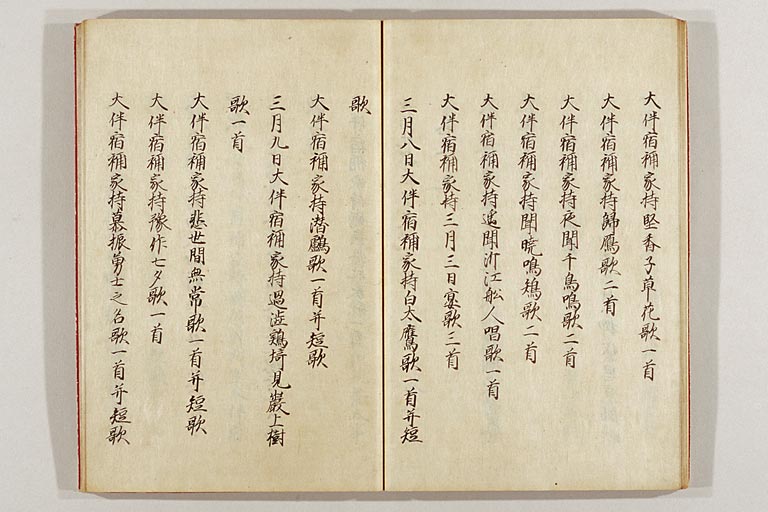 大伴宿祢家持堅香子草花歌一首
大伴宿祢家持歸鴈歌二首
大伴宿祢家持夜聞千鳥鳴歌二首
大伴宿祢家持聞暁鳴鴙歌二首
大伴宿祢家持遥聞泝江舩人唱歌一首
大伴宿祢家持三月三日宴歌三首
三月八日大伴宿祢家持白太鷹歌一首并短
歌
大伴宿祢家持潜鸕歌一首并短歌
三月九日大伴宿祢家持過澁鶏埼見巖上樹
歌一首
大伴宿祢家持悲世間無常歌一首并短歌
大伴宿祢家持豫作七夕歌一首
大伴宿祢家持慕振勇士之名歌一首并短歌